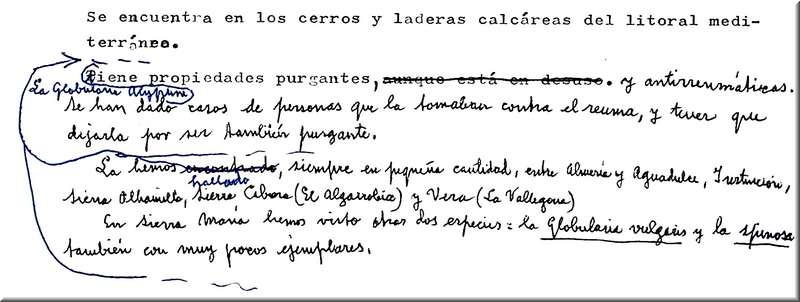 Se encuentra en los cerros y laderas calcáreas del litoral medi-
terráneo.
La Globularia Alypum tiene propiedades purgantes, aunque está en desuso. y antirreumáticas.
Se han dado casos de personas que la tomaban contra el reuma, y tener que
dejarla por ser también purgante.
La hemos encontrado, hallado siempre en pequeña cantidad, entre Almería y Aguadulce,
sierra Alhamilla, sierra Cabrera (El Algarrobico) y Vera (La Vallegona)
En Sierra María hemos visto otras dos especies: la Globularia vulgaris y la spinosa
también con muy pocos ejemplares.